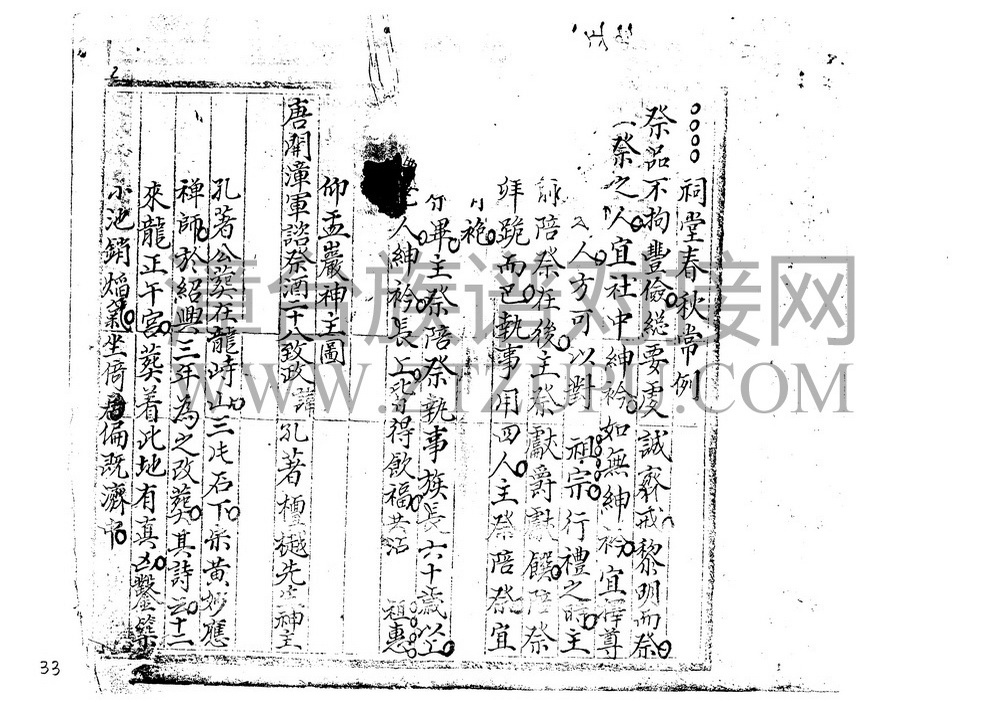 祠堂春秋常例
祭品不拘豐儉總要虔誠齋戒黎明而祭
一祭之人宜社中紳衿如無紳衿宜擇尊
人方可以對祖宗行禮之時主
詠陪祭在後主祭獻爵獻饌陪祭
拜跪而已執事用四人主祭陪祭宜
袍
畢主祭陪祭執事族長六十歲以上
人紳衿長上乃得飲福共沾祖惠
仰盂巖神主圖
唐開漳軍諮祭酒二十八致政諱孔著檀樾先生神主
孔著公葬在龍峙山三片石下宋黃妙應
禅師於紹興三年為之改葬其詩云十二
來龍正午宮葬着此地有真凶鑿築
小池銷焰氣坐倚居偏既濟中
章台族谱对接网
WWW.ZTZUPU.COM
33